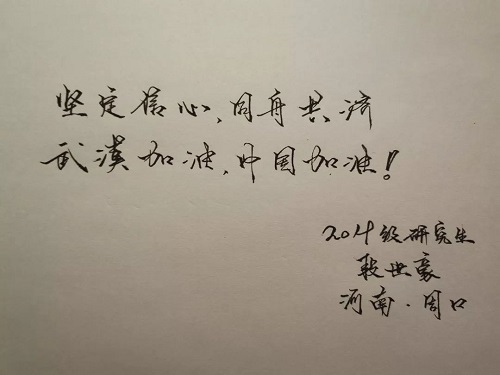 坚定信心,同舟共济
武漢加油,中国加油!
级研究生
世豪
河南·周口